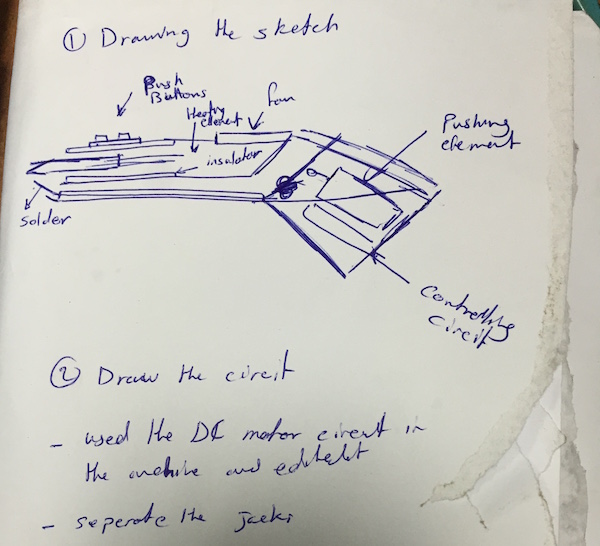 ① Drawing the sketch
Push
Buttons
Heating
element
fan
Pushing
element
insulator
Solder
Controlling
Circit
② Draw the circit
- used the DC motor circuit in
the and
- seperate the jacks